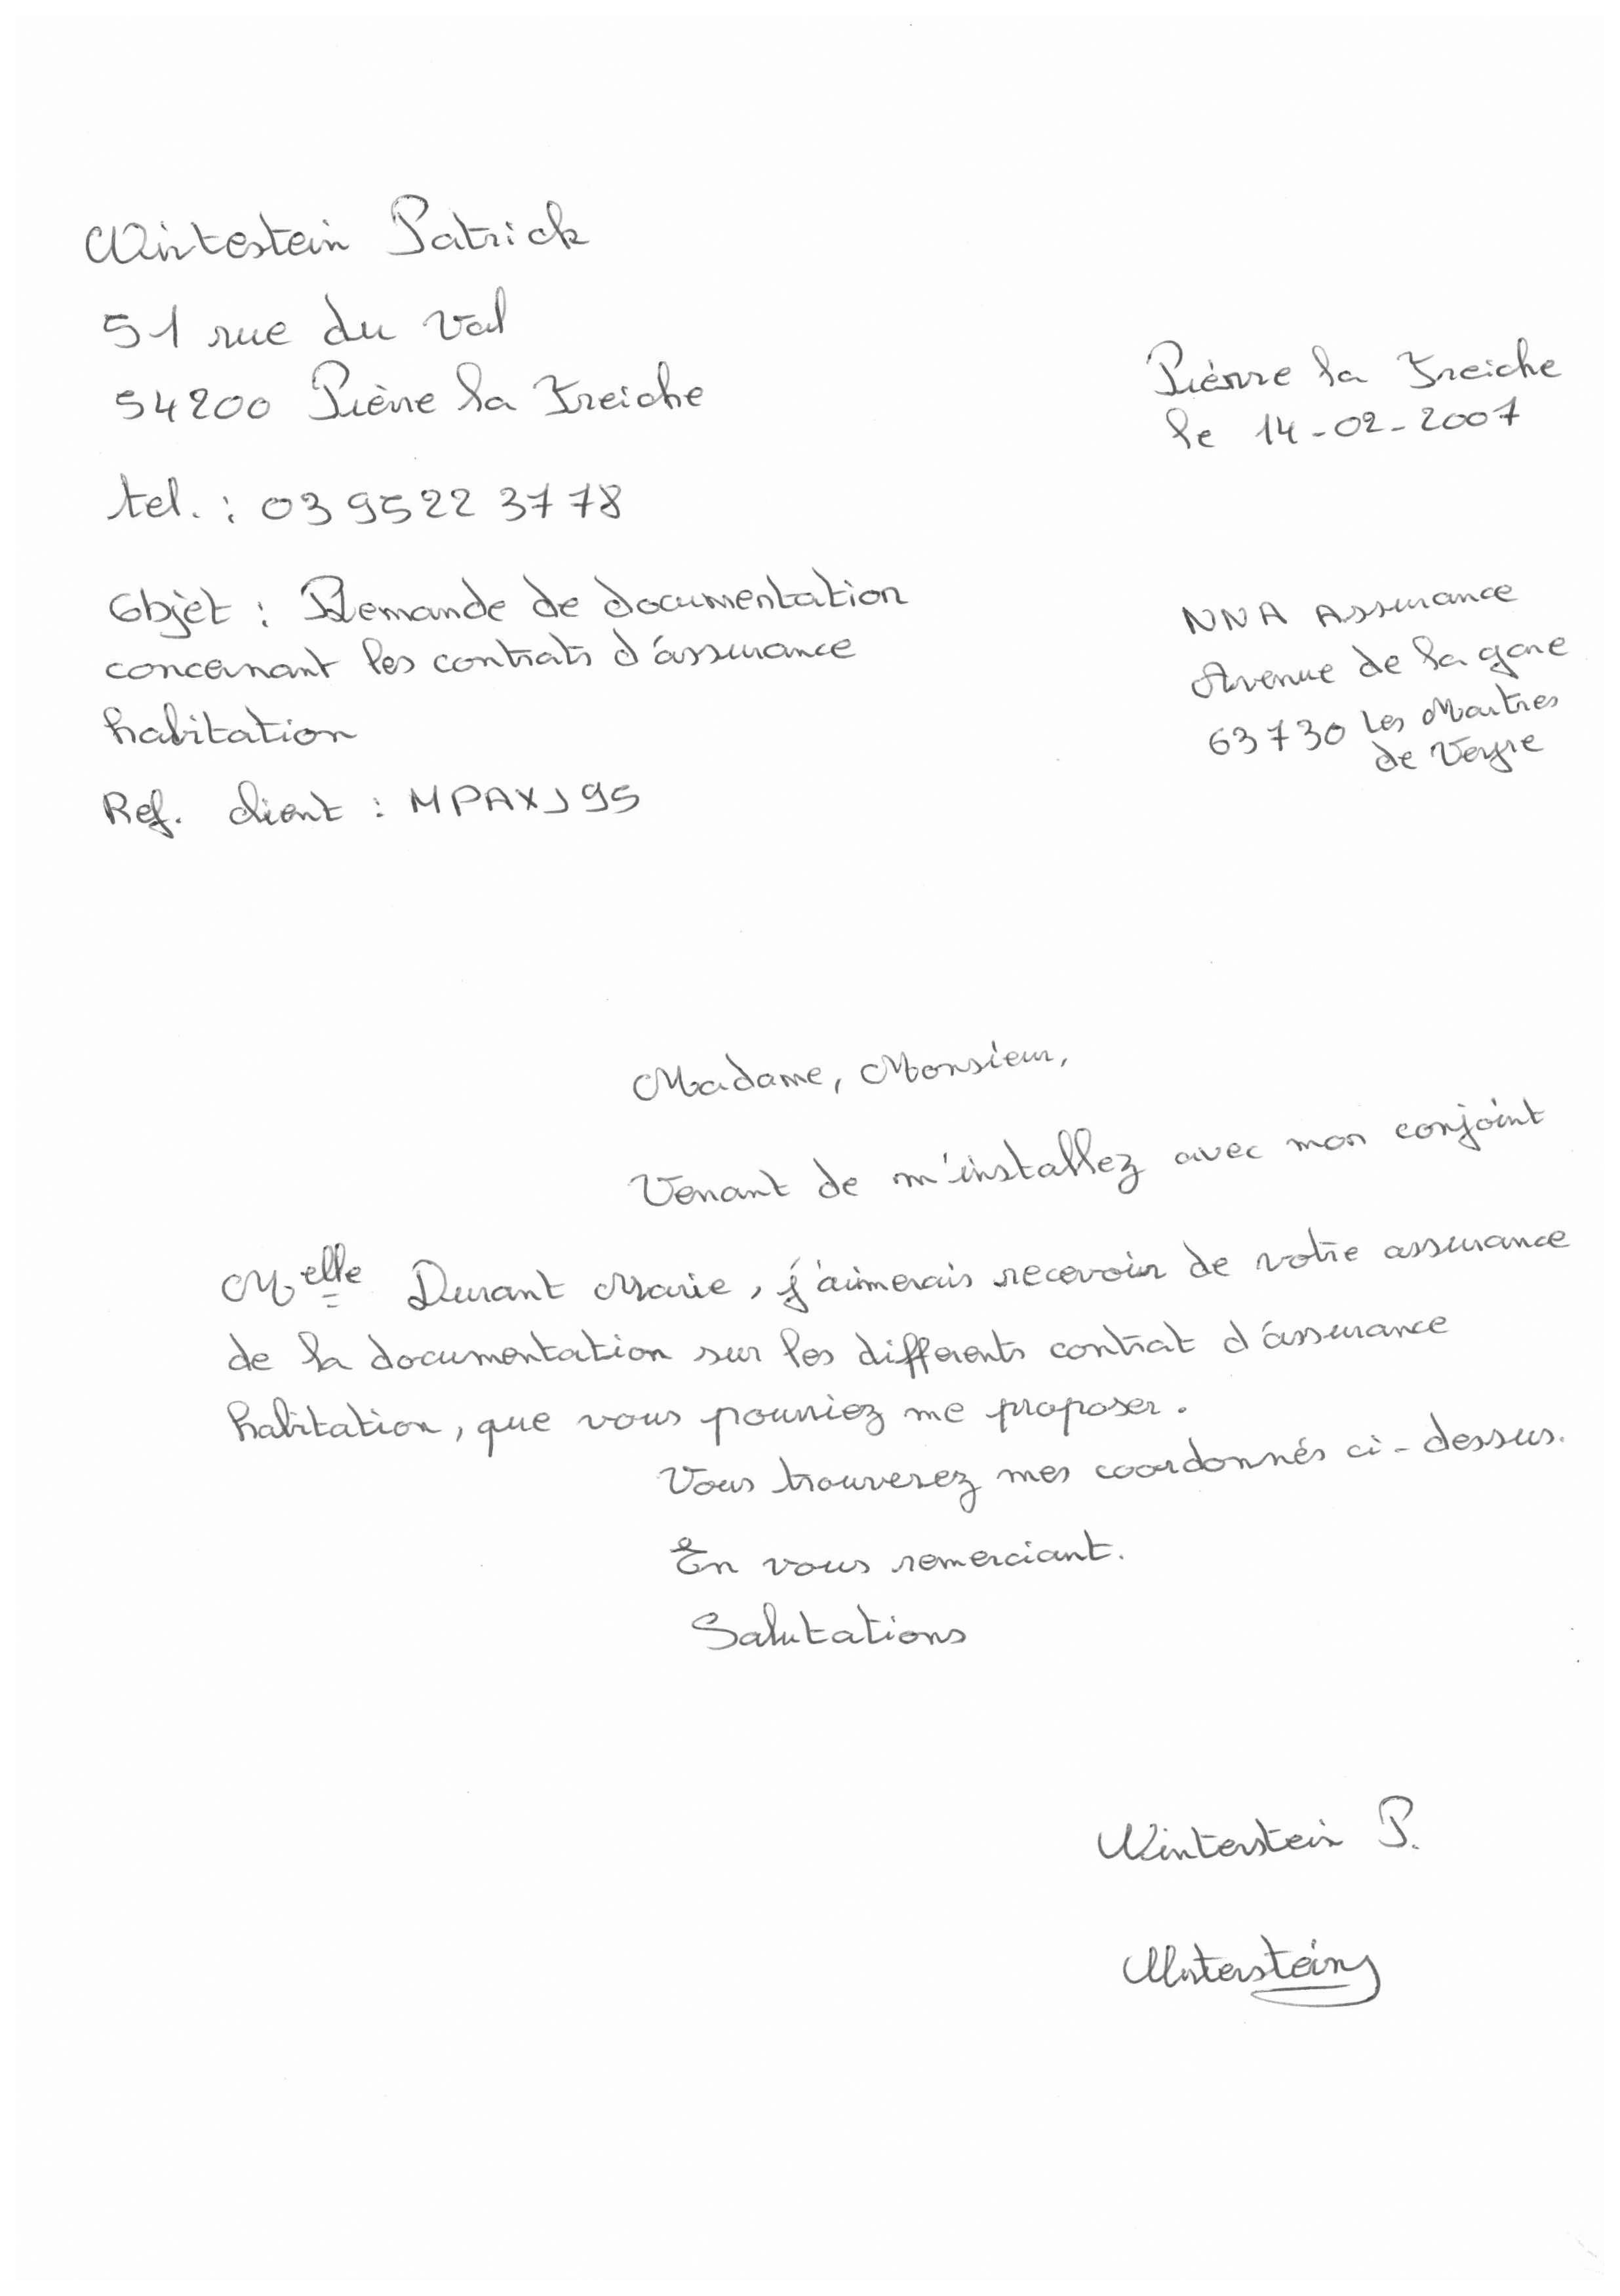 Wintestein Patrick
51 rue du Val
54200 Pièrre la Treiche
Pièrre la Treiche
le 14-02-2007
tel. : 03 95 22 37 78
Objet : Demande de documentation
concernant les contrats d'assurance
habitation
Ref. client : MPAXJ95
NNA Assurance
Avenue de la gare
63730 Les Martres
de Veyre
Madame, Monsieur,
Venant de m'installez avec mon conjoint
Melle Durant Marie, j'aimerais recevoir de votre assurance
de la documentation sur les differents contrat d'assurance
habitation, que vous pourriez me proposer.
Vous trouverez mes coordonnés ci-dessus.
En vous remerciant.
Salutations
Winterstein P.
Winterstein